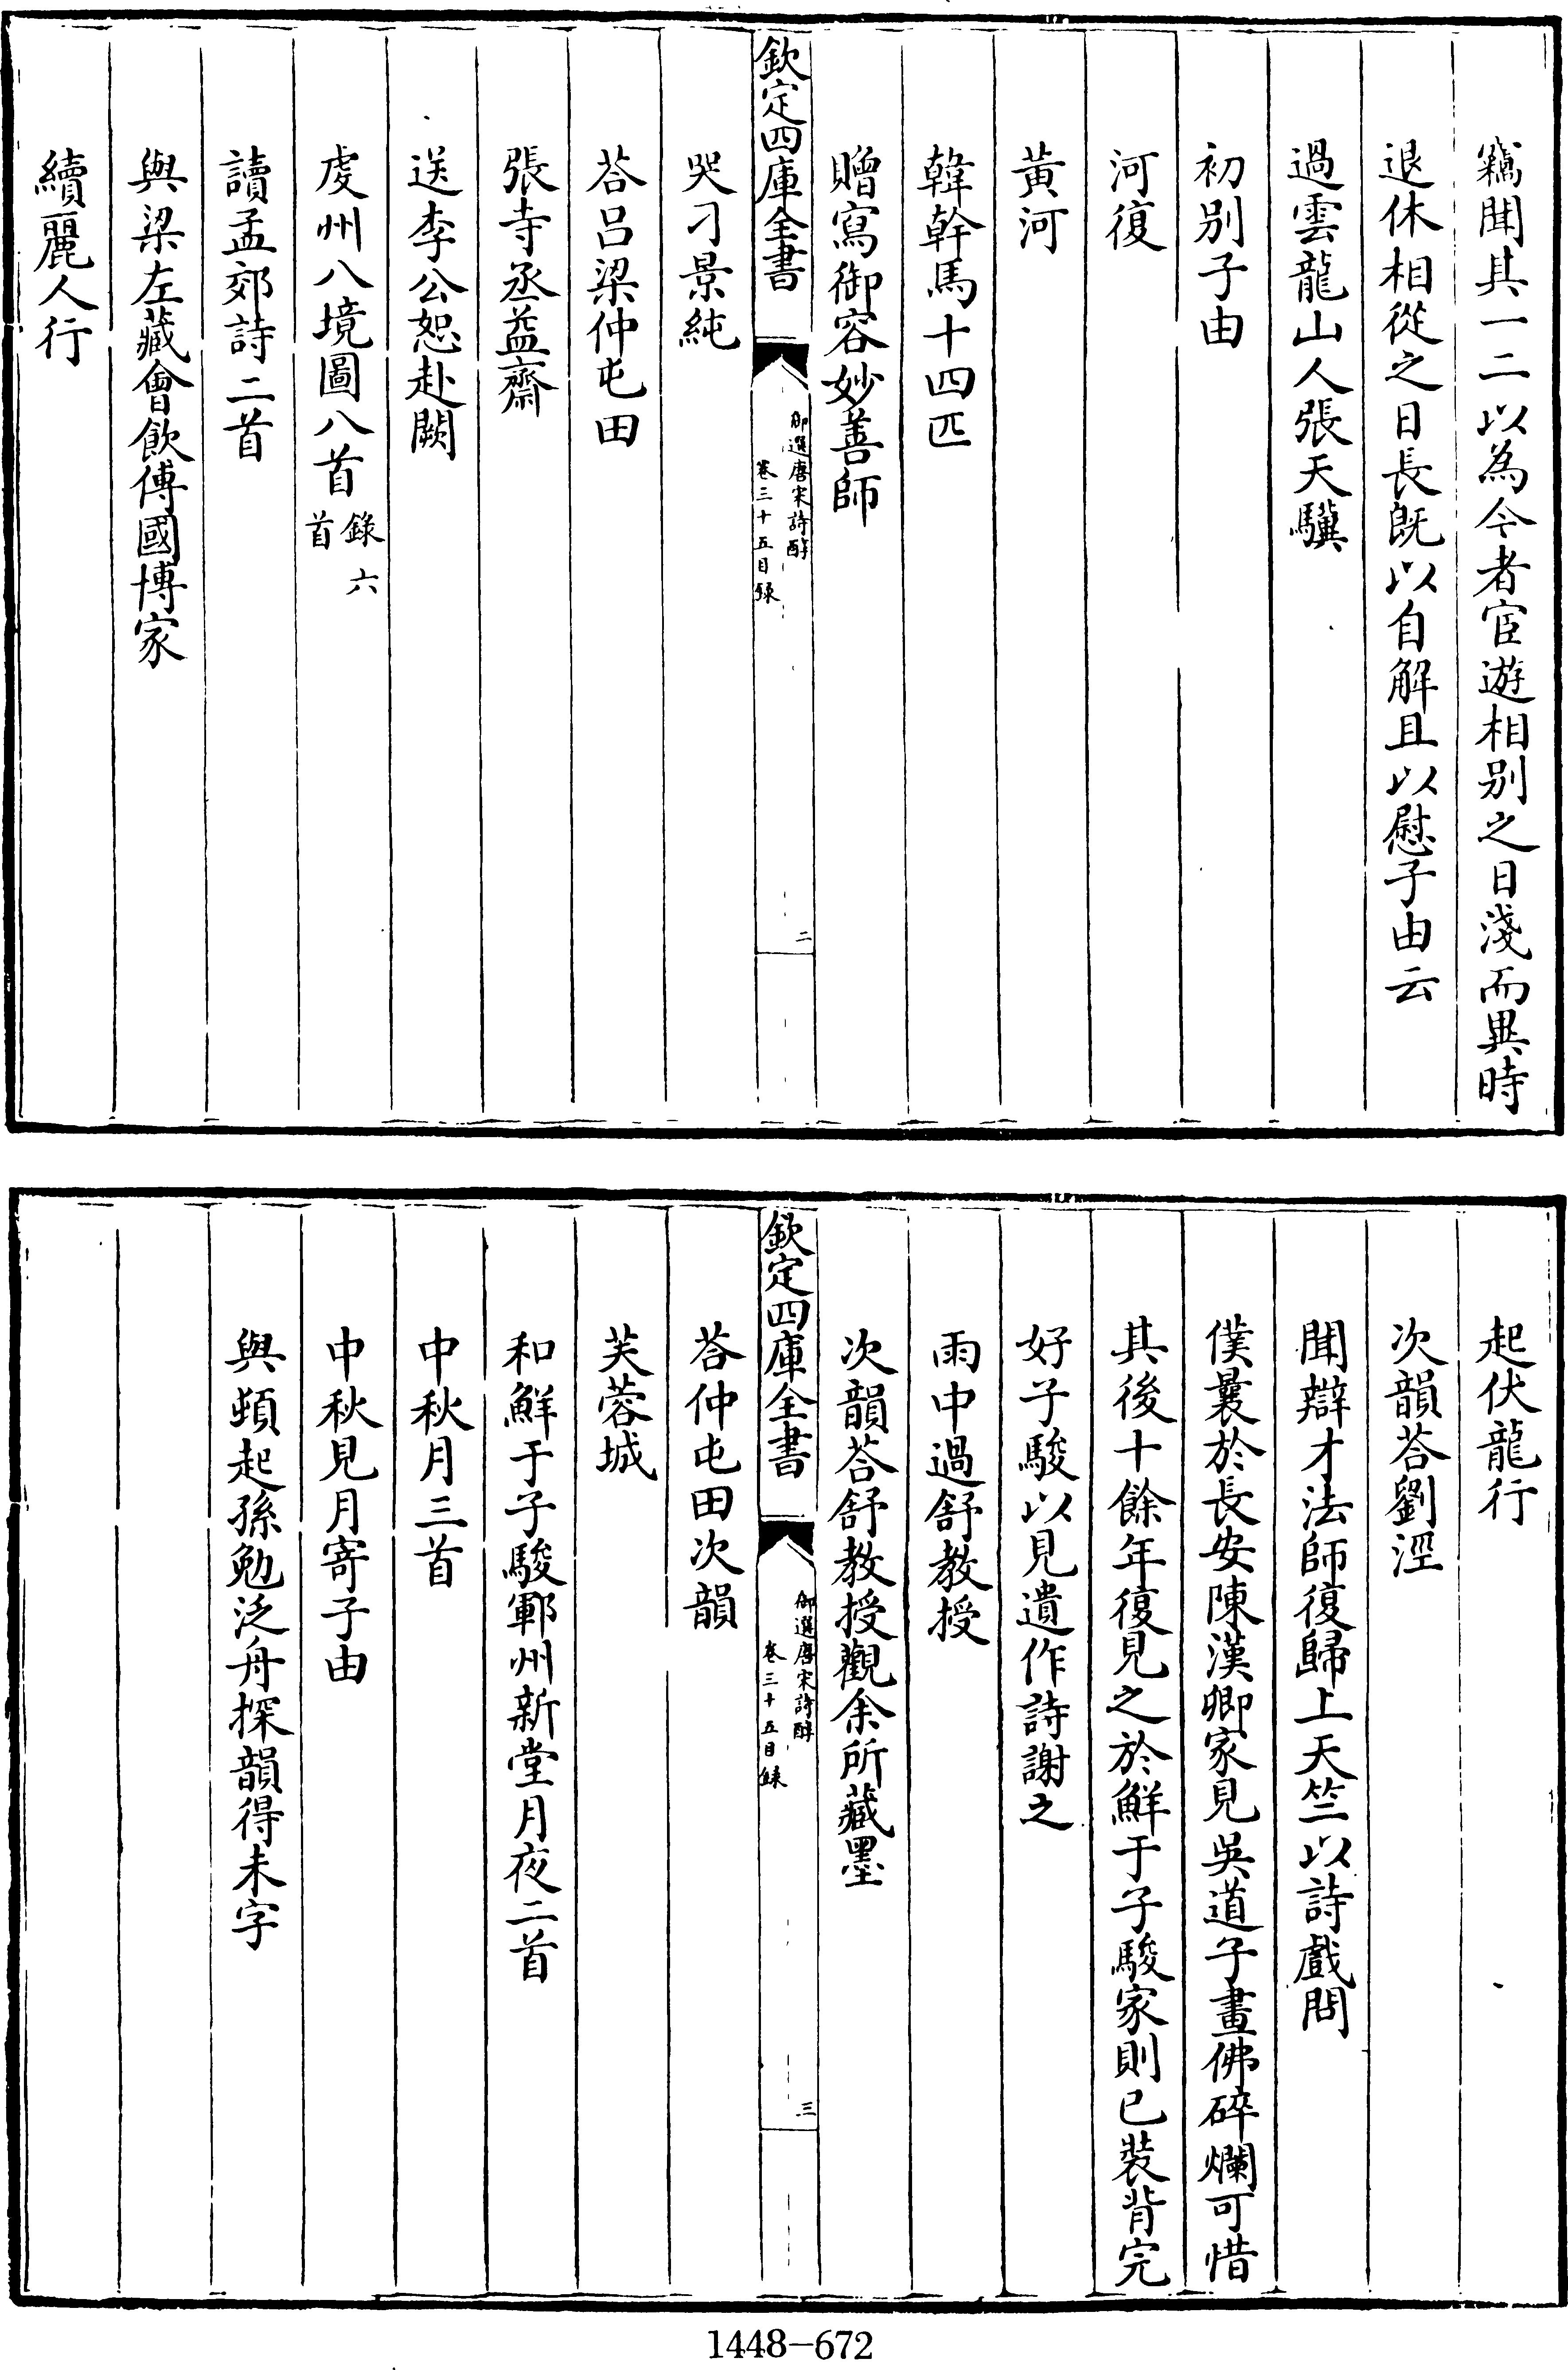 竊聞其一二以為今者宦遊相别之日淺而異時
退休相從之日長既以自解且以慰子由云
過雲龍山人張天驥
初别子由
河復
黃河
韓幹馬十四匹
贈寫御容妙善師
欽定四庫全書
御選唐宋詩醇
卷三十五目錄
二
哭刁景純
荅呂梁仲屯田
張寺丞益齋
送李公恕赴闕
虔州八境圖八首錄六首
讀孟郊詩二首
與梁左藏會飲傅國博家
續麗人行
起伏龍行
次韻荅劉涇
聞辯才法師復歸上天竺以詩戲問
僕曩於長安陳漢卿家見吳道子畫佛碎爛可惜
其後十餘年復見之於鮮于子駿家則已裝背完
好子駿以見遺作詩謝之
雨中過舒教授
次韻荅舒教授觀余所藏墨
欽定四庫全書
御選唐宋詩醇
卷三十五目錄
三
荅仲屯田次韻
芙蓉城
和鮮于子駿鄆州新堂月夜二首
中秋月三首
中秋見月寄子由
與頓起孫勉泛舟探韻得未字
1448-672